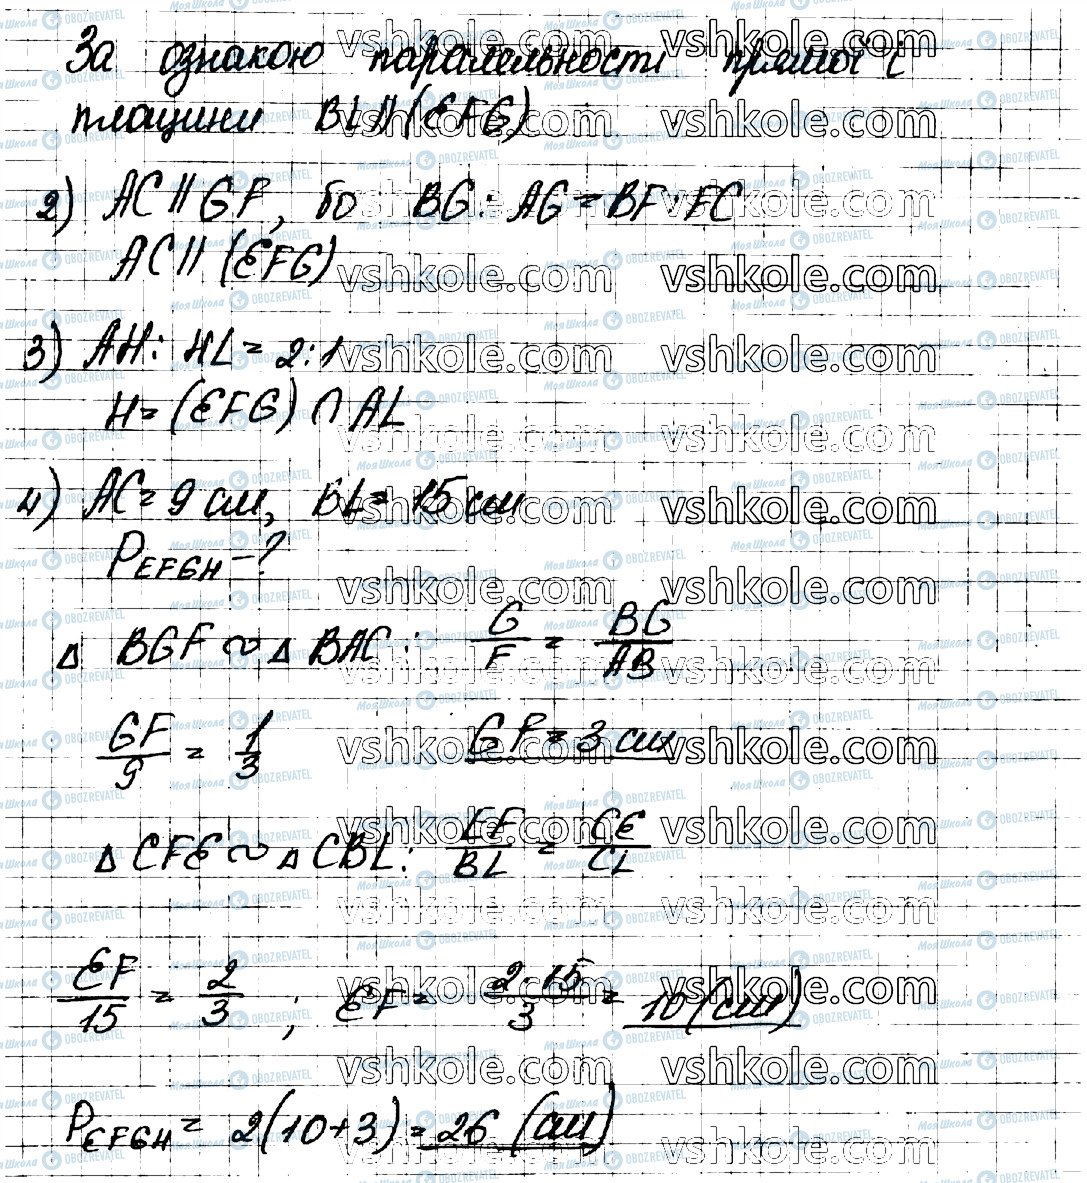 За ознакою паралельності прямої і
площини BL || (EFG)
2) AC || GF, бо BG : AG = BF : FC
AC || (EFG)
3) AH : HL = 2 : 1
H = (EFG) ∩ AL
4) AC = 9 см, BL = 15 см
P EFGH - ?
Δ BGF ∾ Δ BAC : G/F = BG/AB
GF/9 = 1/3 GF = 3 см
Δ CFE ∾ Δ CBL : EF/BL = CE/CL
EF/15 = 2/3 ; EF = 2·15/3 = 10 (см)
P EFGH = 2(10+3) = 26 (см)
vshkole.com
МояШкола OBOZREVATEL